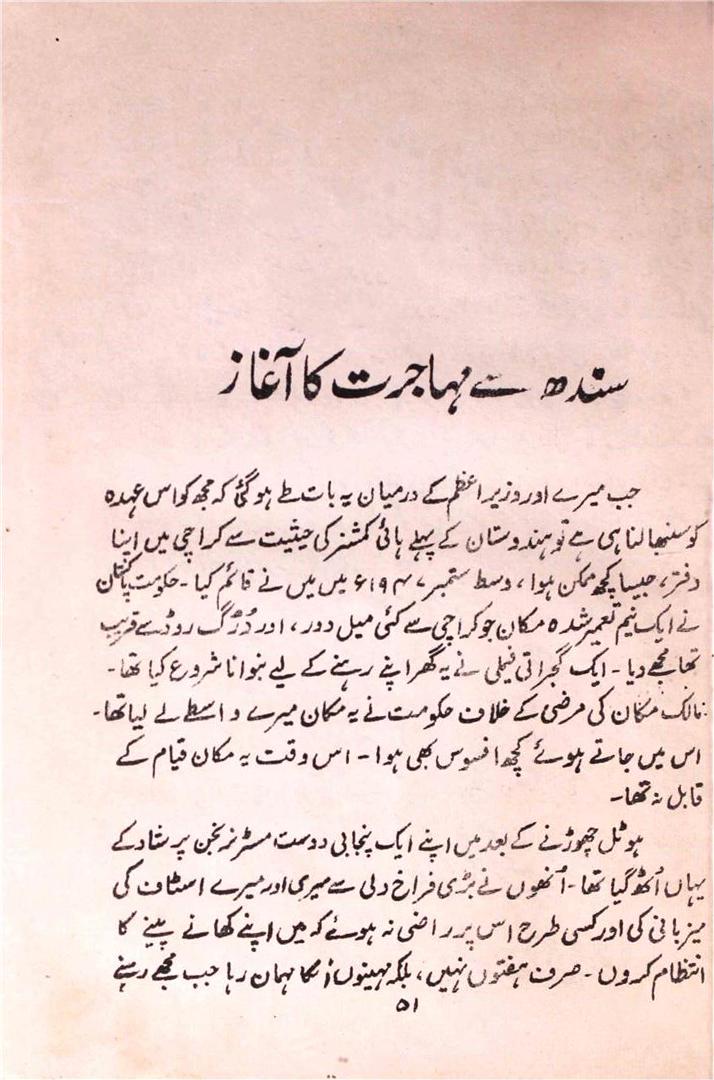 سندھ سے مہاجرت کا آغاز
جب میرے اور وزیر اعظم کے درمیان یہ بات طے ہو گئی کہ مجھ کو اس عہدہ
کو سنبھالنا ہی ہے تو ہندوستان کے پہلے ہائی کمشنر کی حیثیت سے کراچی میں اپنا
دفتر، جیسا کچھ ممکن ہوا، وسط ستمبر ۱۹۴۷ء میں میں نے قائم کیا۔ حکومت پاکستان
نے ایک نیم تعمیر شدہ مکان جو کراچی سے کئی میل دور، اور ڈرگ روڈ سے قریب
تھا مجھے دیا۔ ایک گجراتی فیملی نے یہ گھر اپنے رہنے کے لیے بنوانا شروع کیا تھا۔
مالک مکان کی مرضی کے خلاف حکومت نے یہ مکان میرے واسطے لے لیا تھا۔
اس میں جاتے ہوئے کچھ افسوس بھی ہوا۔ اس وقت یہ مکان قیام کے
قابل نہ تھا۔
ہوٹل چھوڑنے کے بعد میں اپنے ایک پنجابی دوست مسٹر نرنجن پرشاد کے
یہاں اُٹھ گیا تھا۔ اُنھوں نے بڑی فراخ دلی سے میری اور میرے اسٹاف کی
میزبانی کی اور کسی طرح اس پر راضی نہ ہوئے کہ میں اپنے کھانے پینے کا
انتظام کروں۔ صرف ہفتوں نہیں، بلکہ مہینوں اُنکا مہمان رہا جب مجھے رہنے
۵۱